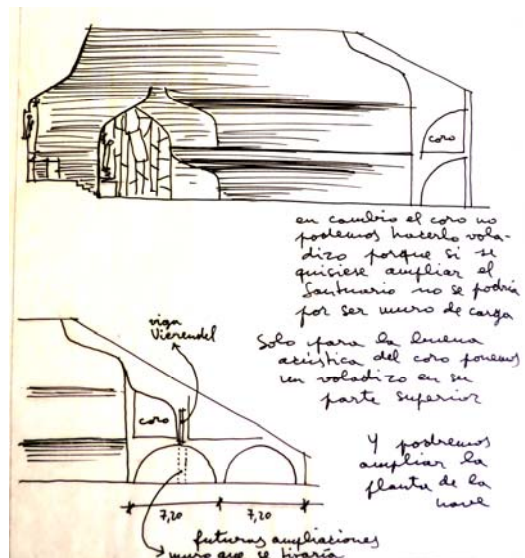 coro
en cambio el coro no
podemos hacerlo vola-
dizo porque si se
quisiese ampliar el
Santuario no se podría
por ser muro de carga
viga
Vierendel
Solo para la buena
acústica del coro ponemos
un voladizo en su
parte superior
coro
Y podremos
ampliar la
planta de la
nave
7,20
7,20
futuras ampliaciones
muro que se tiraría